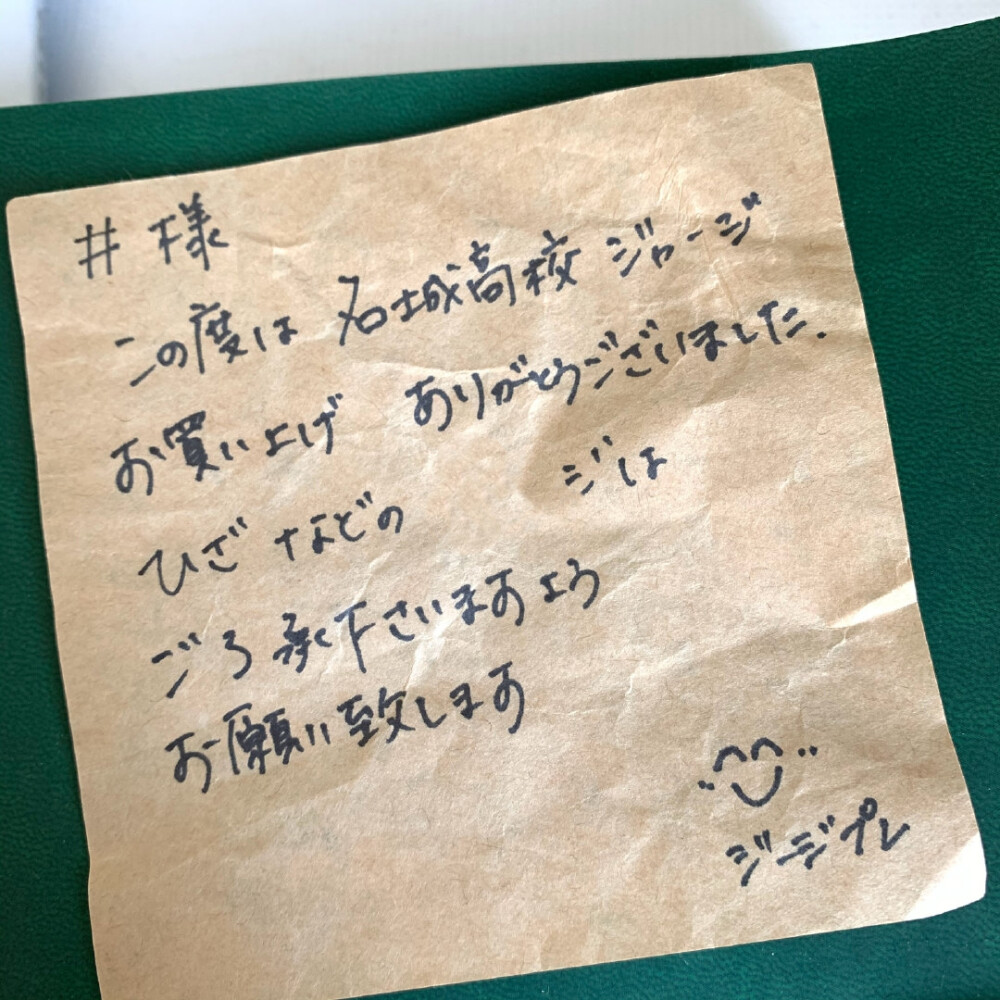 井 様
この度は 名城高校 ジャージ
お買い上げ ありがとうございました.
ひざ などの ジは
ご了承下さいますよう
お願い致します
ジージプレ